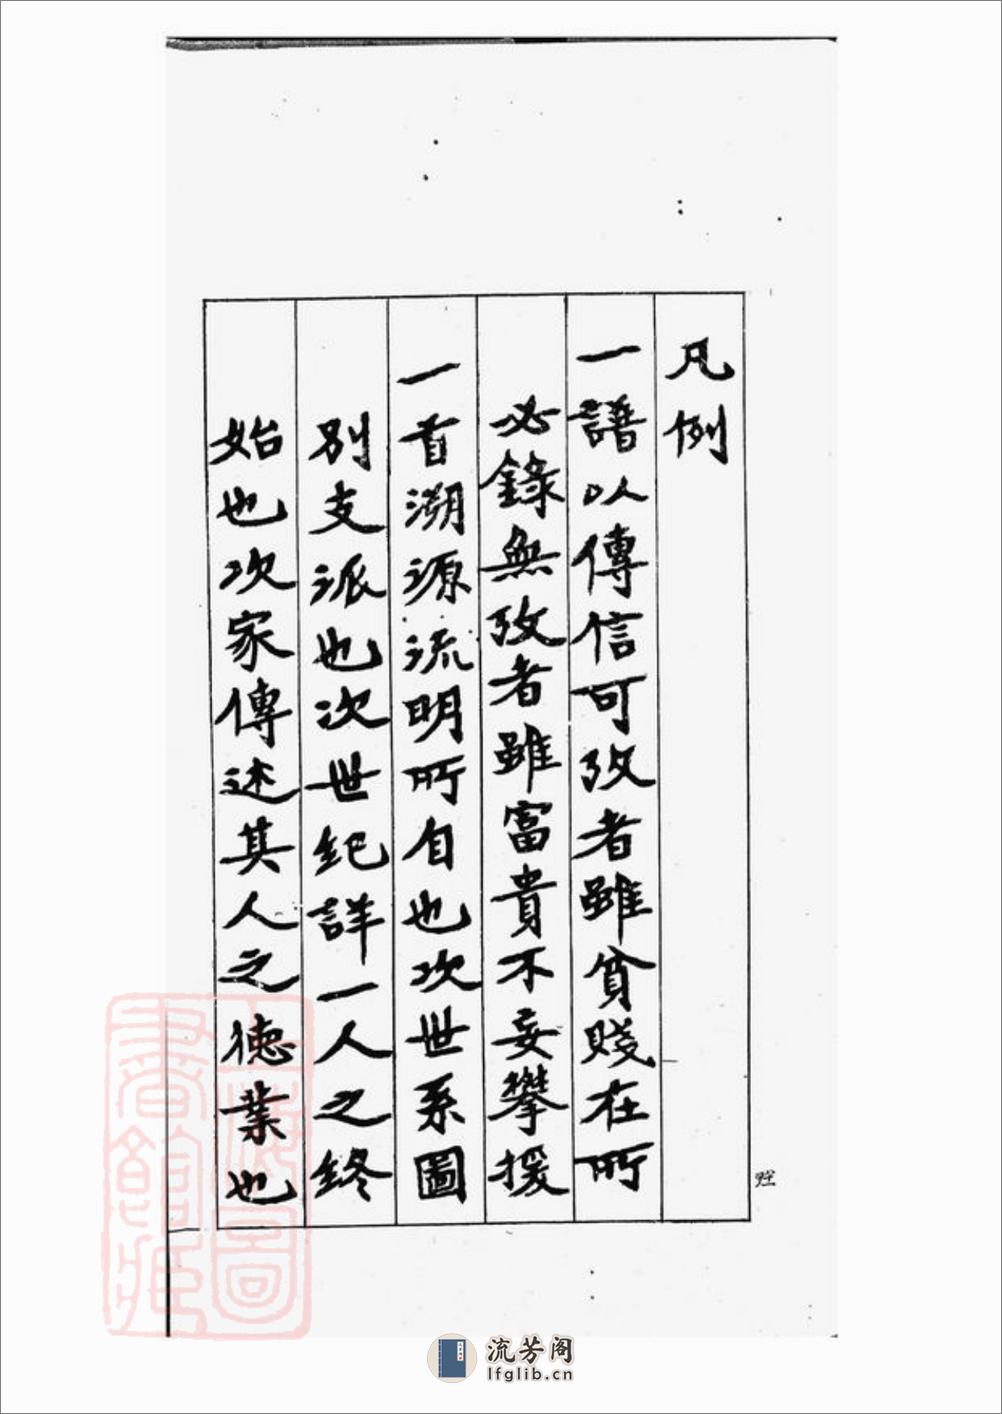 凡例
一譜以傳信可攷者雖貧賤在所
必錄無攷者雖富貴不妄攀援
一首溯源流明所自也次世系圖
別支派也次世紀詳一人之終
始也次家傳述其人之德業也
上海圖書館藏
流芳阁
lfglib.cn